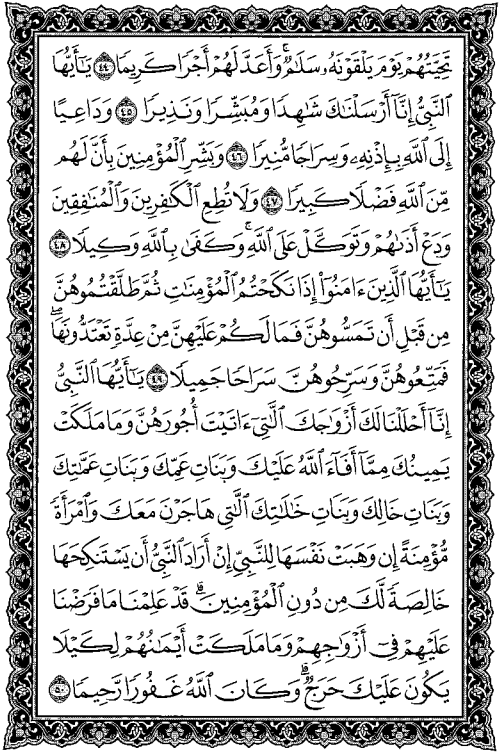 تَحِيَّتُهُمْ يَوْمَ يَلْقَوْنَهُۥ سَلَٰمٌۚ وَأَعَدَّ لَهُمْ أَجْرًا كَرِيمًا ٤٤ يَٰٓأَيُّهَا
ٱلنَّبِىُّ إِنَّآ أَرْسَلْنَٰكَ شَٰهِدًا وَمُبَشِّرًا وَنَذِيرًا ٤٥ وَدَاعِيًا
إِلَى ٱللَّهِ بِإِذْنِهِۦ وَسِرَاجًا مُّنِيرًا ٤٦ وَبَشِّرِ ٱلْمُؤْمِنِينَ بِأَنَّ لَهُم
مِّنَ ٱللَّهِ فَضْلًا كَبِيرًا ٤٧ وَلَا تُطِعِ ٱلْكَٰفِرِينَ وَٱلْمُنَٰفِقِينَ
وَدَعْ أَذَىٰهُمْ وَتَوَكَّلْ عَلَى ٱللَّهِۚ وَكَفَىٰ بِٱللَّهِ وَكِيلًا ٤٨
يَٰٓأَيُّهَا ٱلَّذِينَ ءَامَنُوٓا۟ إِذَا نَكَحْتُمُ ٱلْمُؤْمِنَٰتِ ثُمَّ طَلَّقْتُمُوهُنَّ
مِن قَبْلِ أَن تَمَسُّوهُنَّ فَمَا لَكُمْ عَلَيْهِنَّ مِنْ عِدَّةٍ تَعْتَدُّونَهَاۖ
فَمَتِّعُوهُنَّ وَسَرِّحُوهُنَّ سَرَاحًا جَمِيلًا ٤٩ يَٰٓأَيُّهَا ٱلنَّبِىُّ
إِنَّآ أَحْلَلْنَا لَكَ أَزْوَٰجَكَ ٱلَّٰتِىٓ ءَاتَيْتَ أُجُورَهُنَّ وَمَا مَلَكَتْ
يَمِينُكَ مِمَّآ أَفَآءَ ٱللَّهُ عَلَيْكَ وَبَنَاتِ عَمِّكَ وَبَنَاتِ عَمَّٰتِكَ
وَبَنَاتِ خَالِكَ وَبَنَاتِ خَٰلَٰتِكَ ٱلَّٰتِى هَاجَرْنَ مَعَكَ وَٱمْرَأَةً
مُّؤْمِنَةً إِن وَهَبَتْ نَفْسَهَا لِلنَّبِىِّ إِنْ أَرَادَ ٱلنَّبِىُّ أَن يَسْتَنكِحَهَا
خَالِصَةً لَّكَ مِن دُونِ ٱلْمُؤْمِنِينَۗ قَدْ عَلِمْنَا مَا فَرَضْنَا
عَلَيْهِمْ فِىٓ أَزْوَٰجِهِمْ وَمَا مَلَكَتْ أَيْمَٰنُهُمْ لِكَيْلَا
يَكُونَ عَلَيْكَ حَرَجٌۗ وَكَانَ ٱللَّهُ غَفُورًا رَّحِيمًا ٥٠